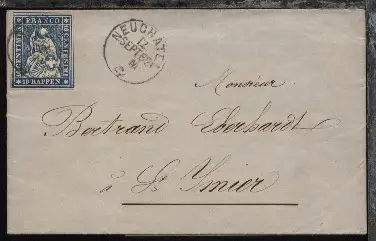 FRANCO
CENTIMES
10 RAPPEN
NEUCHATEL
12
SEPTEMB
Monsieur
Bertrand Eberhardt
à St Ymier